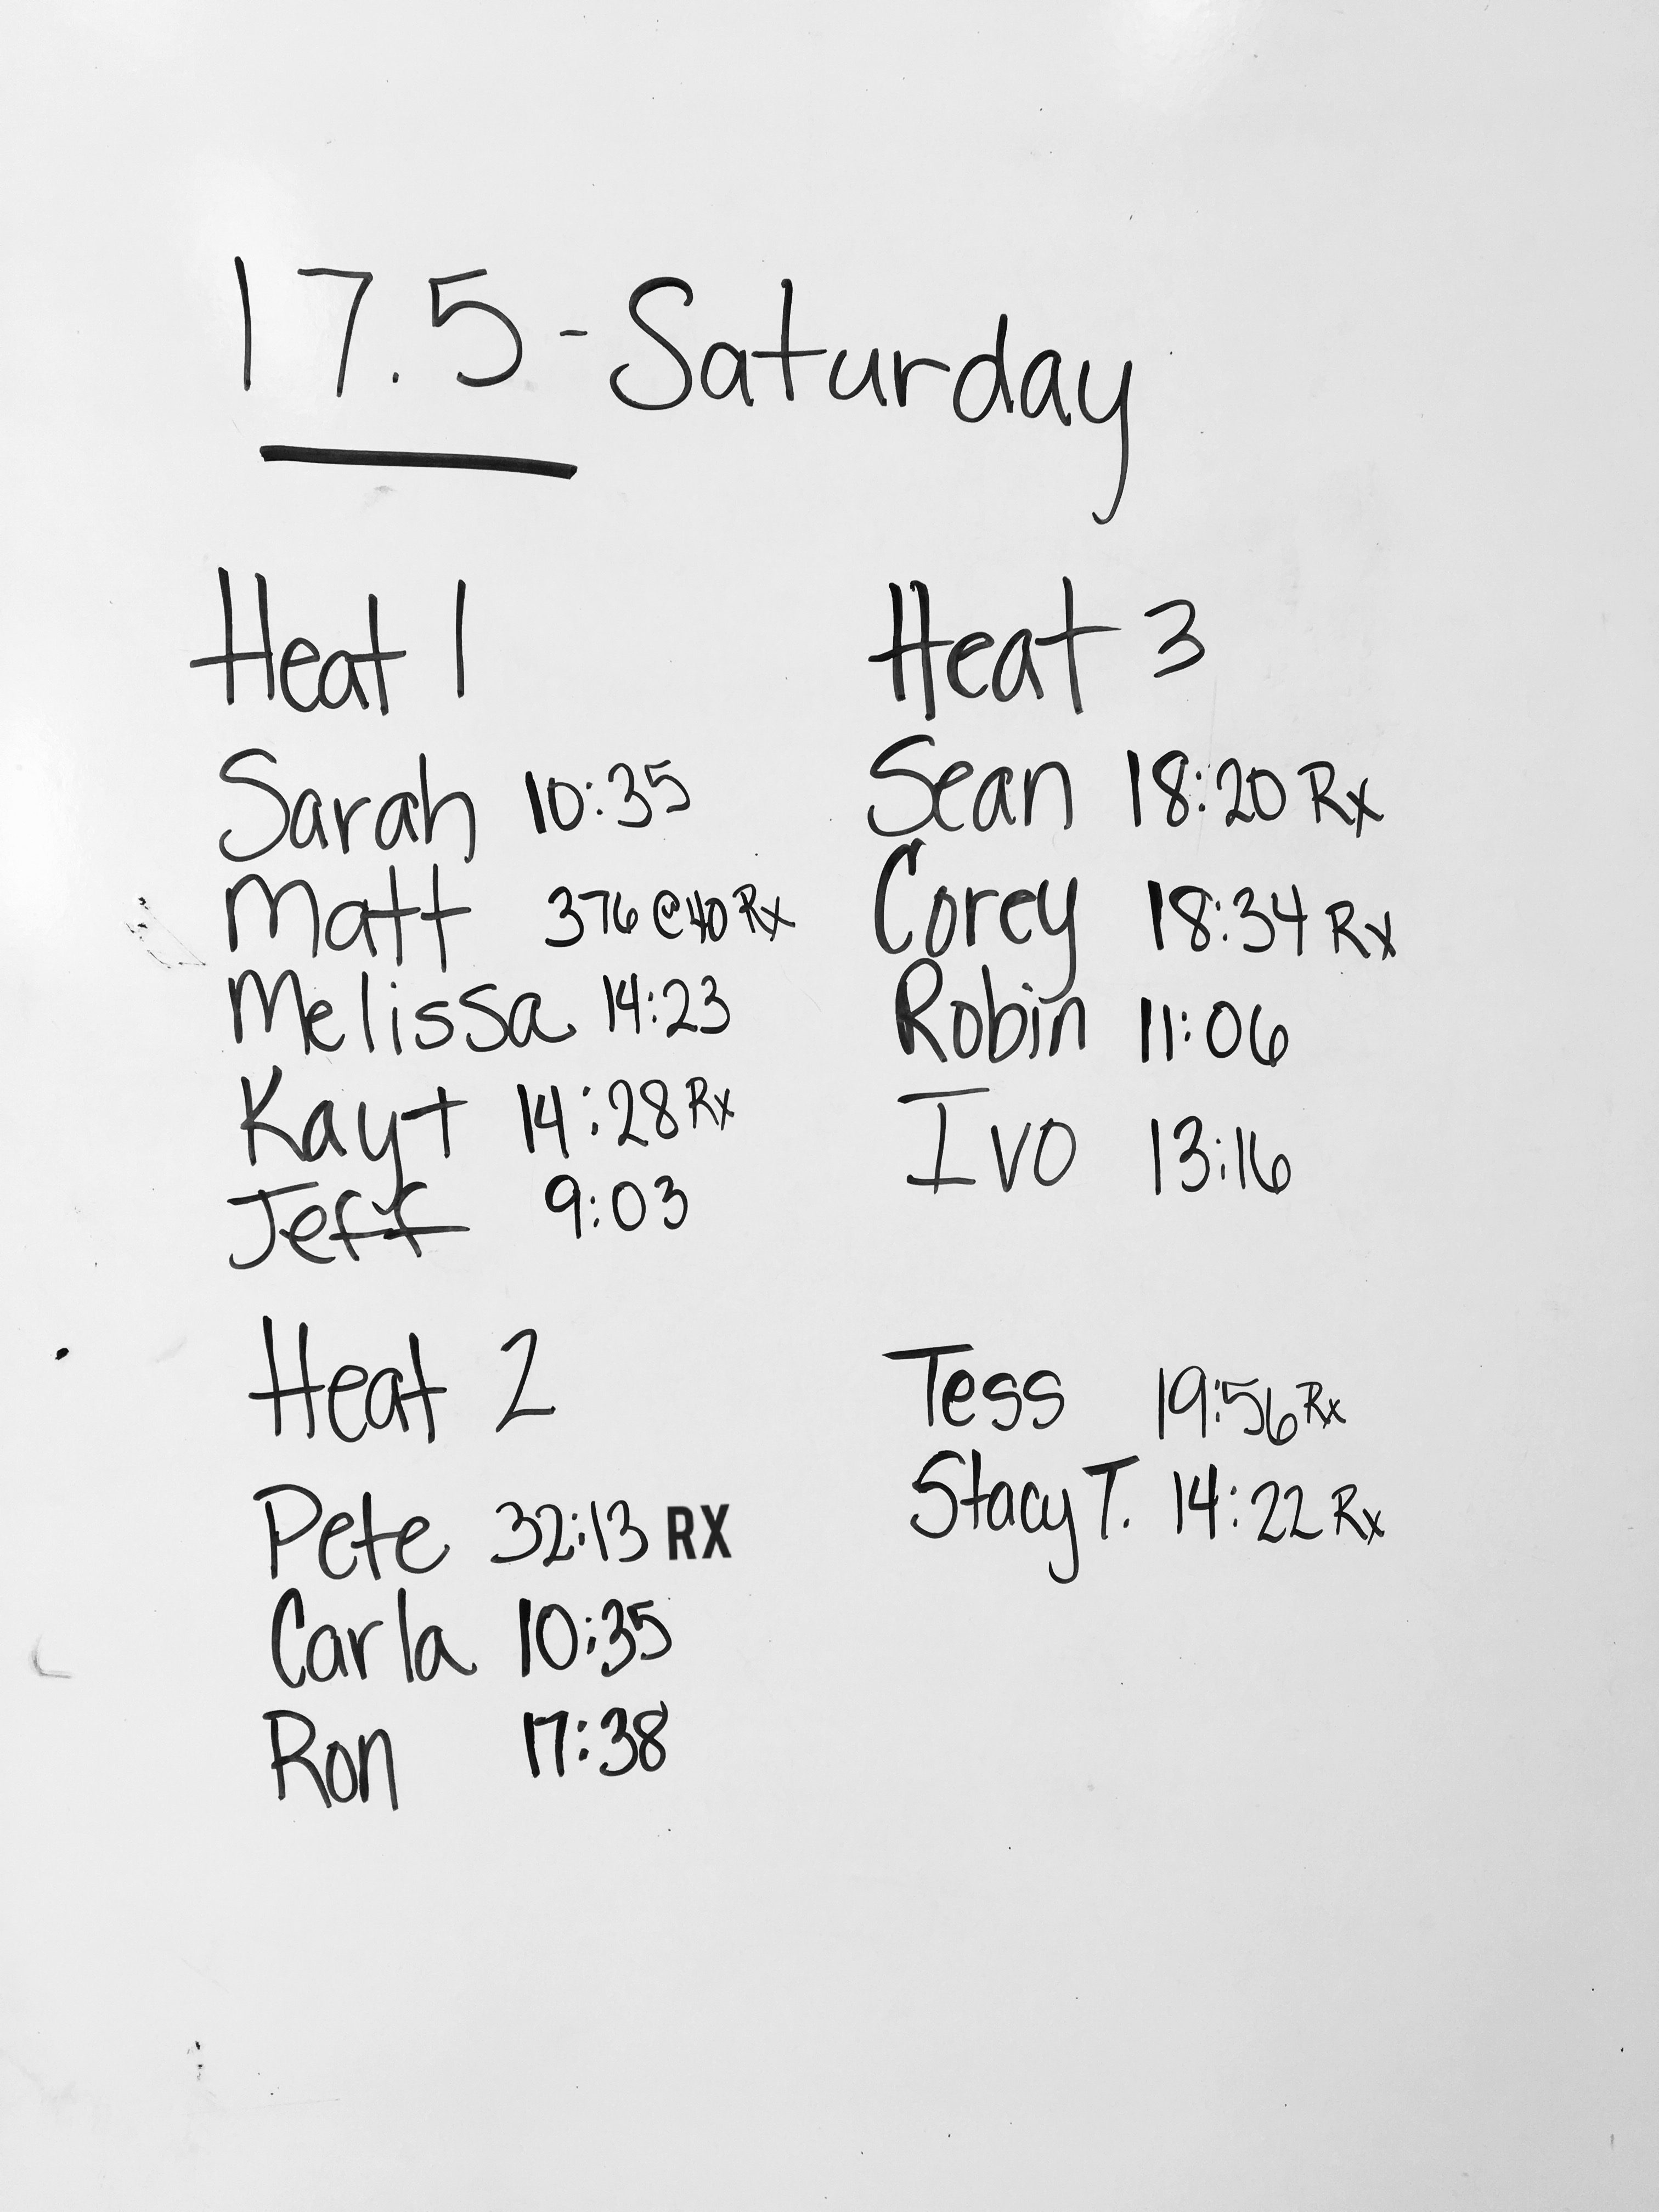 17.5 - Saturday
Heat 1
Sarah 10:35
Matt 376 @ 40 Rx
Melissa 14:23
Kayt 14:28 Rx
Jeff 9:03
Heat 2
Pete 32:13 RX
Carla 10:35
Ron 17:38
Heat 3
Sean 18:20 Rx
Corey 18:34 Rx
Robin 11:06
Ivo 13:16
Tess 19:56 Rx
Stacy T. 14:22 Rx